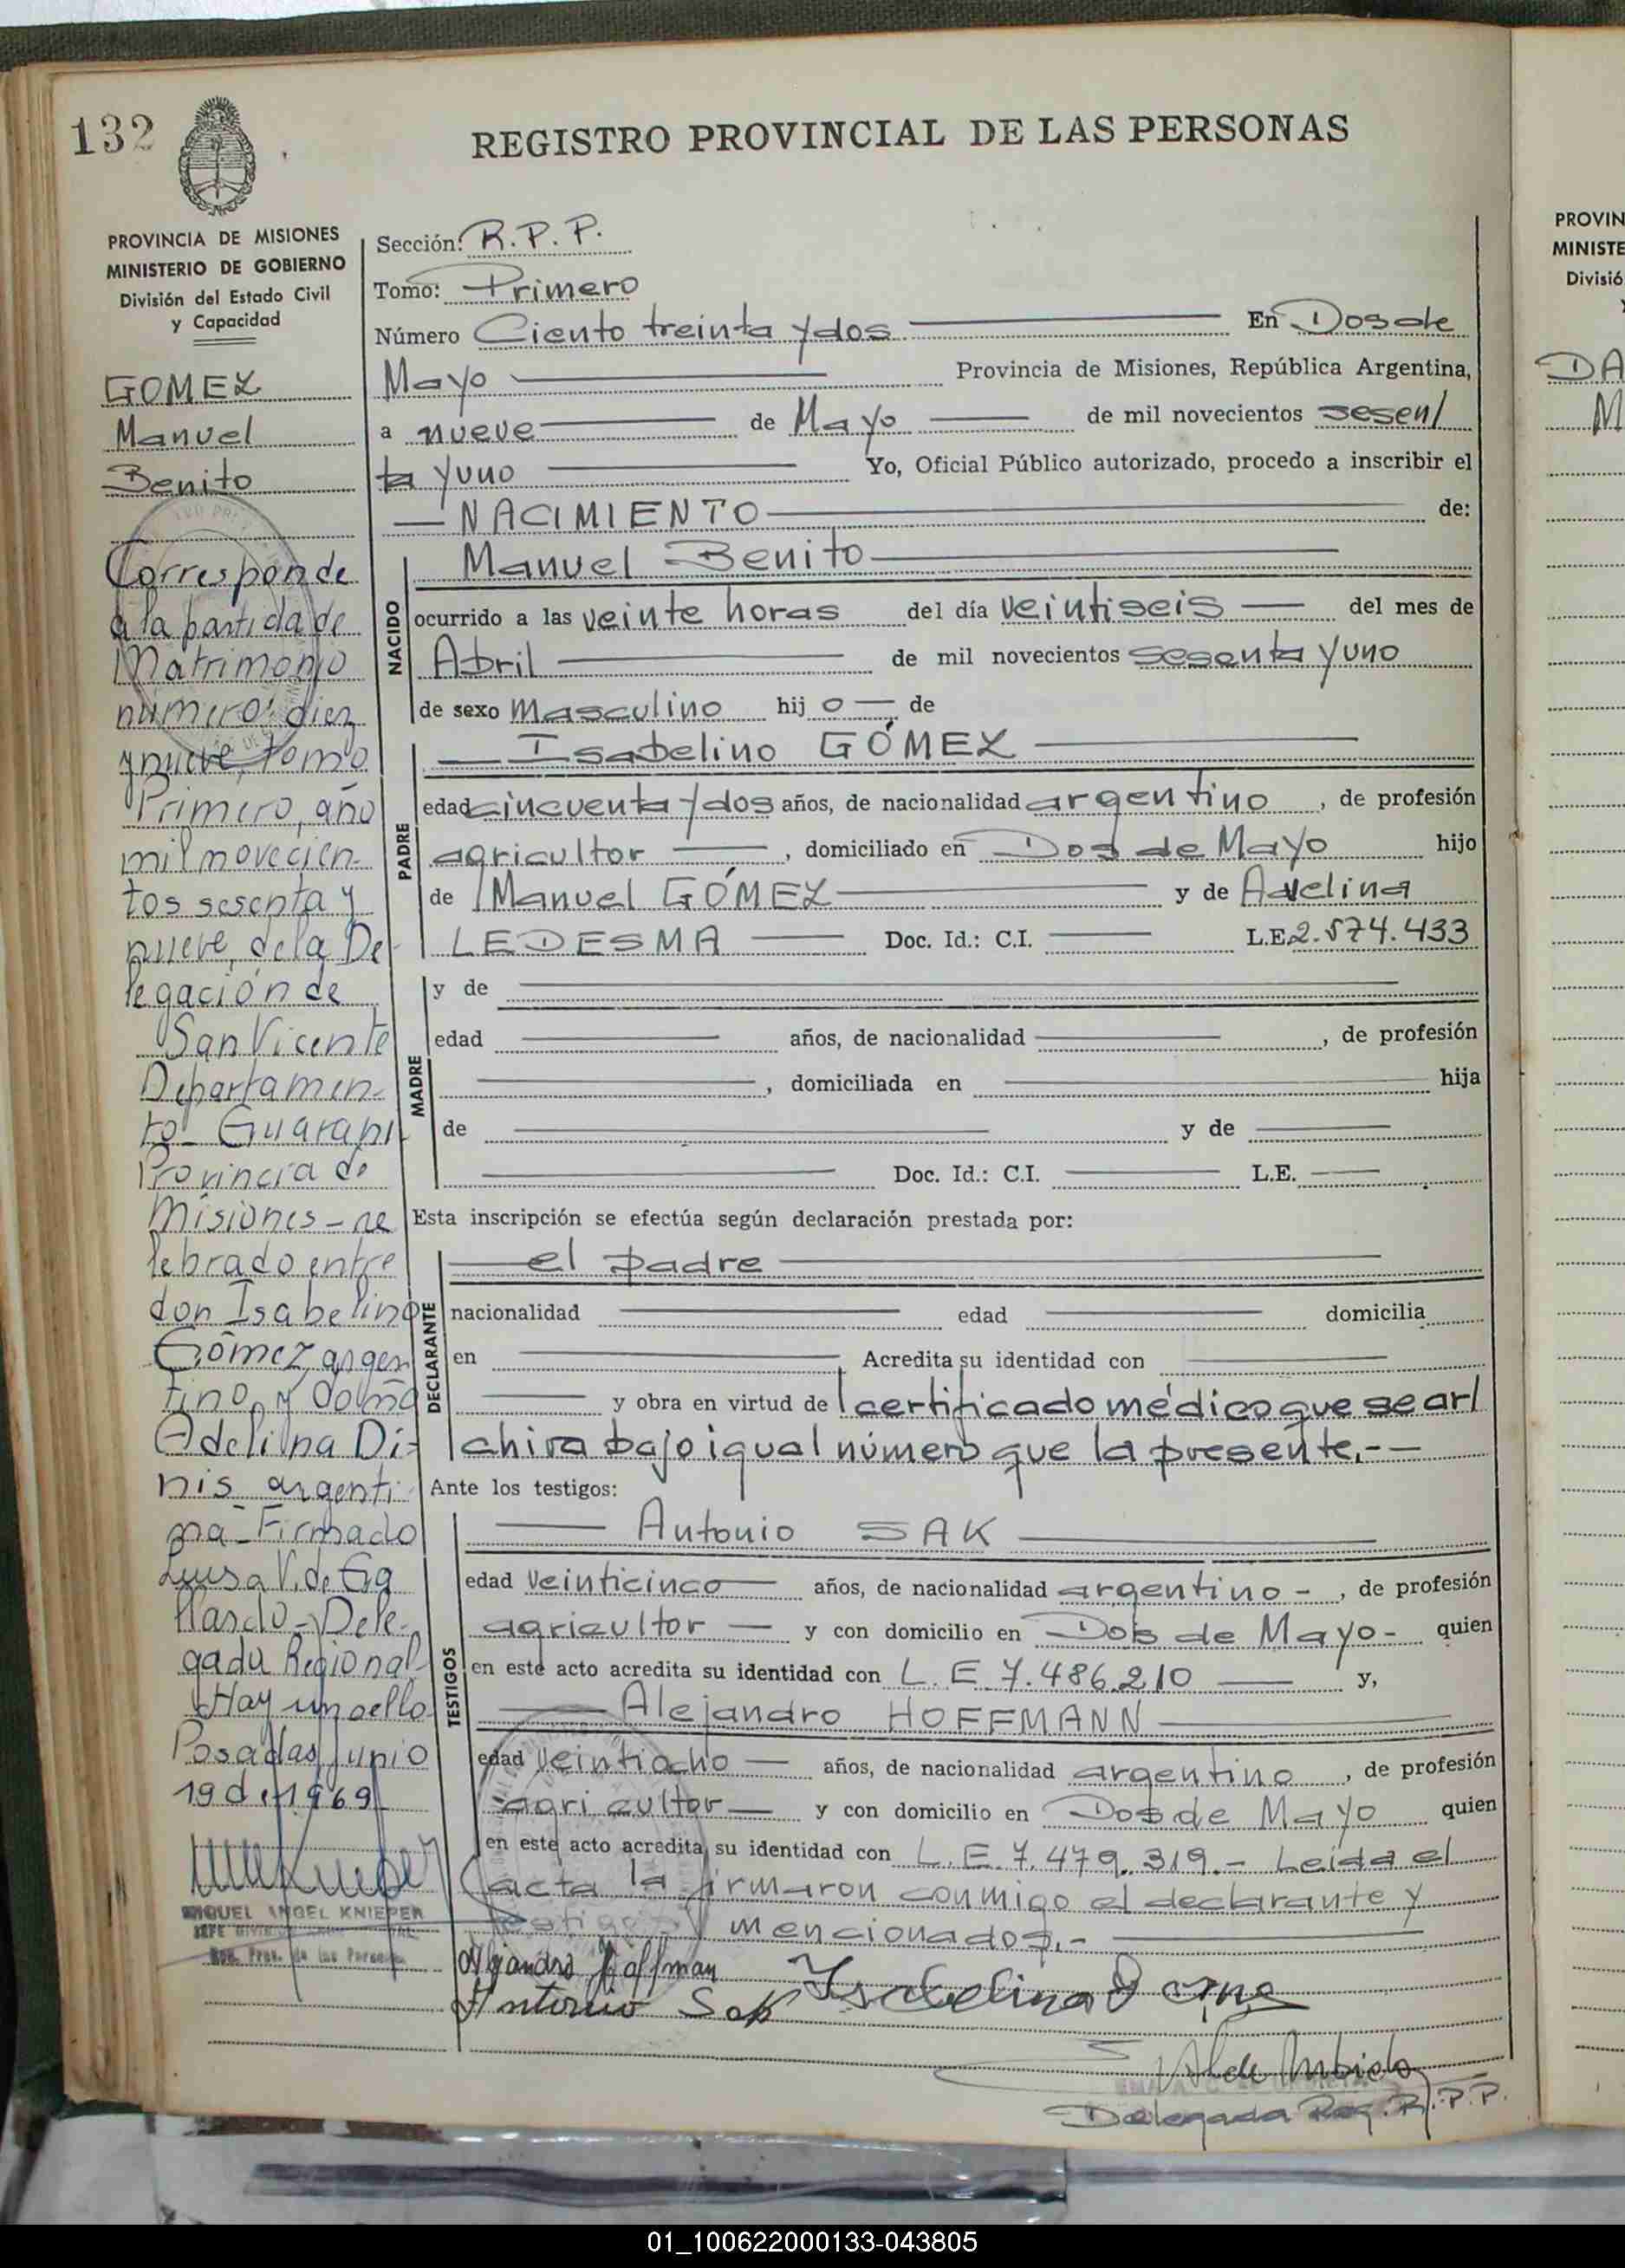 132
REGISTRO PROVINCIAL DE LAS PERSONAS
PROVINCIA DE MISIONES
MINISTERIO DE GOBIERNO
División del Estado Civil
y Capacidad
GOMEZ
Manuel
Benito
Corresponde
a la partida de
Matrimonio
número: diez
y nueve, tomo
Primero, año
mil novecien-
tos sesenta y
nueve, de la De-
legación de
San Vicente
Departamen-
to Guaraní
Provincia de
Misiones - ce
lebrado entre
don Isabelino
Gómez, argen
tino y doña
Adelina Di-
nis argenti
na - Firmado
Luisa V. de Ga
llardo - Dele-
gada Regional
Hay un sello
Posadas, junio
19 de 1969
MIGUEL ANGEL KNIEPER
Sección: R.P.P.
Tomo: Primero
Número Ciento treinta y dos En Dos de
Mayo Provincia de Misiones, República Argentina,
a nueve de Mayo de mil novecientos sesen/
ta y uno Yo, Oficial Público autorizado, procedo a inscribir el
NACIMIENTO de:
NACIDO
Manuel Benito
ocurrido a las veinte horas del día veintiseis del mes de
Abril de mil novecientos sesenta y uno
de sexo masculino hij o de
PADRE
Isabelino GÓMEZ
edad cincuenta y dos años, de nacionalidad argentino, de profesión
agricultor, domiciliado en Dos de Mayo hijo
de Manuel GÓMEZ y de Adelina
LEDESMA Doc. Id.: C.I. L.E. 2.574.433
MADRE
y de
edad años, de nacionalidad , de profesión
, domiciliada en hija
de y de
Doc. Id.: C.I. L.E.
Esta inscripción se efectúa según declaración prestada por:
DECLARANTE
el padre
nacionalidad edad domicilia
en Acredita su identidad con
y obra en virtud de l certificado médico que se ar/
chiva bajo igual número que la presente.--
Ante los testigos:
TESTIGOS
Antonio SAK
edad veinticinco años, de nacionalidad argentino -, de profesión
agricultor y con domicilio en Dos de Mayo- quien
en este acto acredita su identidad con L.E. 7.486.210 y,
Alejandro HOFFMANN
edad veintiocho años, de nacionalidad argentino, de profesión
agricultor y con domicilio en Dos de Mayo quien
en este acto acredita su identidad con L.E. 7.479.319.- Leída el
acta la firmaron conmigo el declarante y
testigos mencionados.-
Alejandro Hoffman
Antonio Sak
Delegada Reg. R.P.P.
PROVIN
MINISTE
Divisió
DA
M
01_100622000133-043805